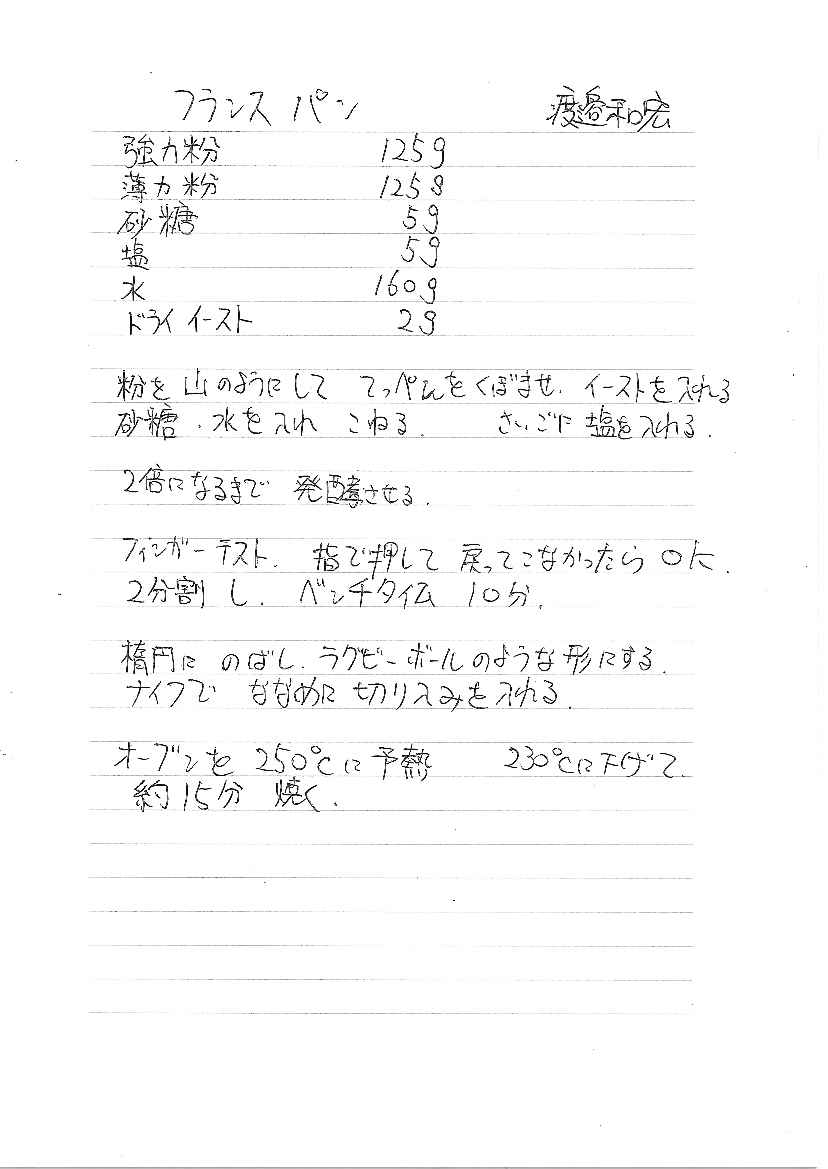 フランスパン 渡邉和宏
強力粉 125g
薄力粉 125g
砂糖 5g
塩 5g
水 160g
ドライイースト 2g
粉を山のようにして てっぺんをくぼませ、イーストを入れる
砂糖・水を入れ こねる。 さいごに塩を入れる。
2倍になるまで 発酵させる。
フィンガーテスト、指で押して戻ってこなかったらOK。
2分割し、ベンチタイム 10分。
楕円に のばし、ラグビーボールのような形にする。
ナイフで ななめに切り込みを入れる。
オーブンを 250℃に予熱 230℃に下げて
約15分 焼く。